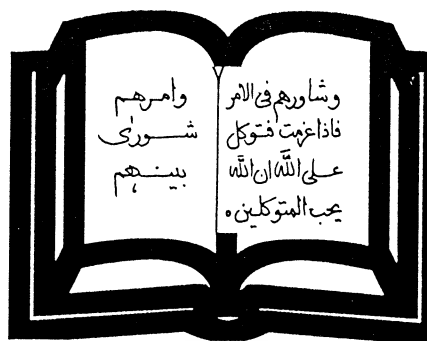 وشاورهم فى الامر
فاذا عزمت فتوكل
على الله ان الله
يحب المتوكلين
وامرهم
شورى
بينهم